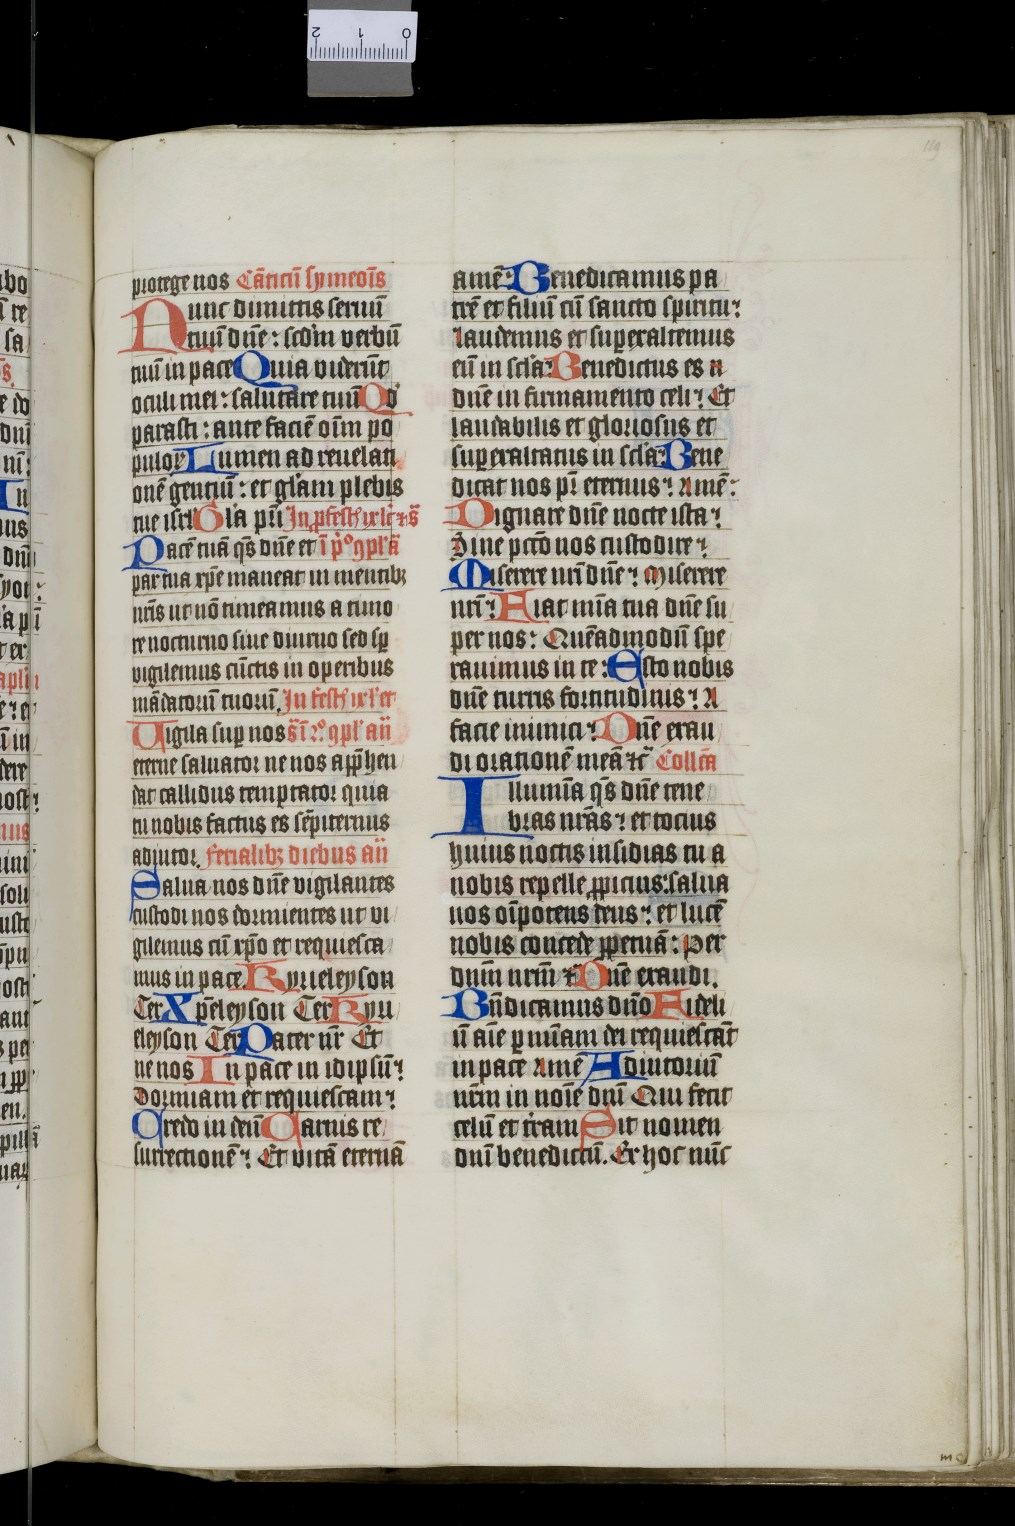 protege nos Cāticū symeoīs
Nunc dimittis seruū
tuū dn̄e : scd̓m verbū
tuū in pace Quia viderūt
oculi mei : salutare tuū Qd̓
parasti : ante faciē oīm po
puloꝝ Lumen ad reuelati
onē gentiū : et gl̓am plebis
tue isrl̓ Gl̓a pr̄i In
Pacē tuā qs̄ dn̄e et
pax tua xp̄e maneat in mentibꝫ
nr̄is ut nō timeamus a timo
re nocturno siue diurno sed sp̄
vigilemus cūctis in operibus
mādatorū tuorū. In fest̓
Vigila sup nos
eterne saluator ne nos app̄hen
dat callidus temptator quia
tu nobis factus es sēpiternus
adiutor. ferialibꝫ diebus añ
Salua nos dn̄e vigilantes
custodi nos dormientes ut vi
gilemus cū xp̄o et requiesca
mus in pace. Kyrieleyson
Ter Xp̄eleyson Ter Kyri
eleyson Ter Pater nr̄ Et
ne nos In pace in idipsū :
Dormiam et requiescam :
Credo in deū Carnis re
surrectionē : Et vitā eternā
amē. Benedicamus pa
trē et filiū cū sancto spiritu :
laudemus et superexaltemus
eū in scl̓a : Benedictus es
dn̄e in firmamento celi : Et
laudabilis et gloriosus et
superexaltatus in scl̓a : Bene
dicat nos pr̄ eternus : Amē :
Dignare dn̄e nocte ista :
Sine pctō nos custodire :
Miserere nr̄i dn̄e : Miserere
nr̄i : Fiat mīa tua dn̄e su
per nos : Quēadmodū spe
rauimus in te : Esto nobis
dn̄e turris fortitudinis : A
facie inimici : Dn̄e exau
di orationē meā ⁊c̄ Collc̄a
Illumīa qs̄ dn̄e tene
bras nr̄as : et tocius
huius noctis insidias tu a
nobis repelle ꝓpicius : salua
nos oīpotens deus : et lucē
nobis concede ꝑpetuā : Per
dnm̄ nrm̄ ⁊c̄ Dn̄e exaudi.
Bn̄dicamus dn̄o Fideli
ū aīe ꝑ mīam dei requiescāt
in pace Amē Adiutoriū
nrm̄ in noīe dn̄i Qui fecit
celū et t̓ram Sit nomen
dn̄i benedictū. Ex hoc nūc